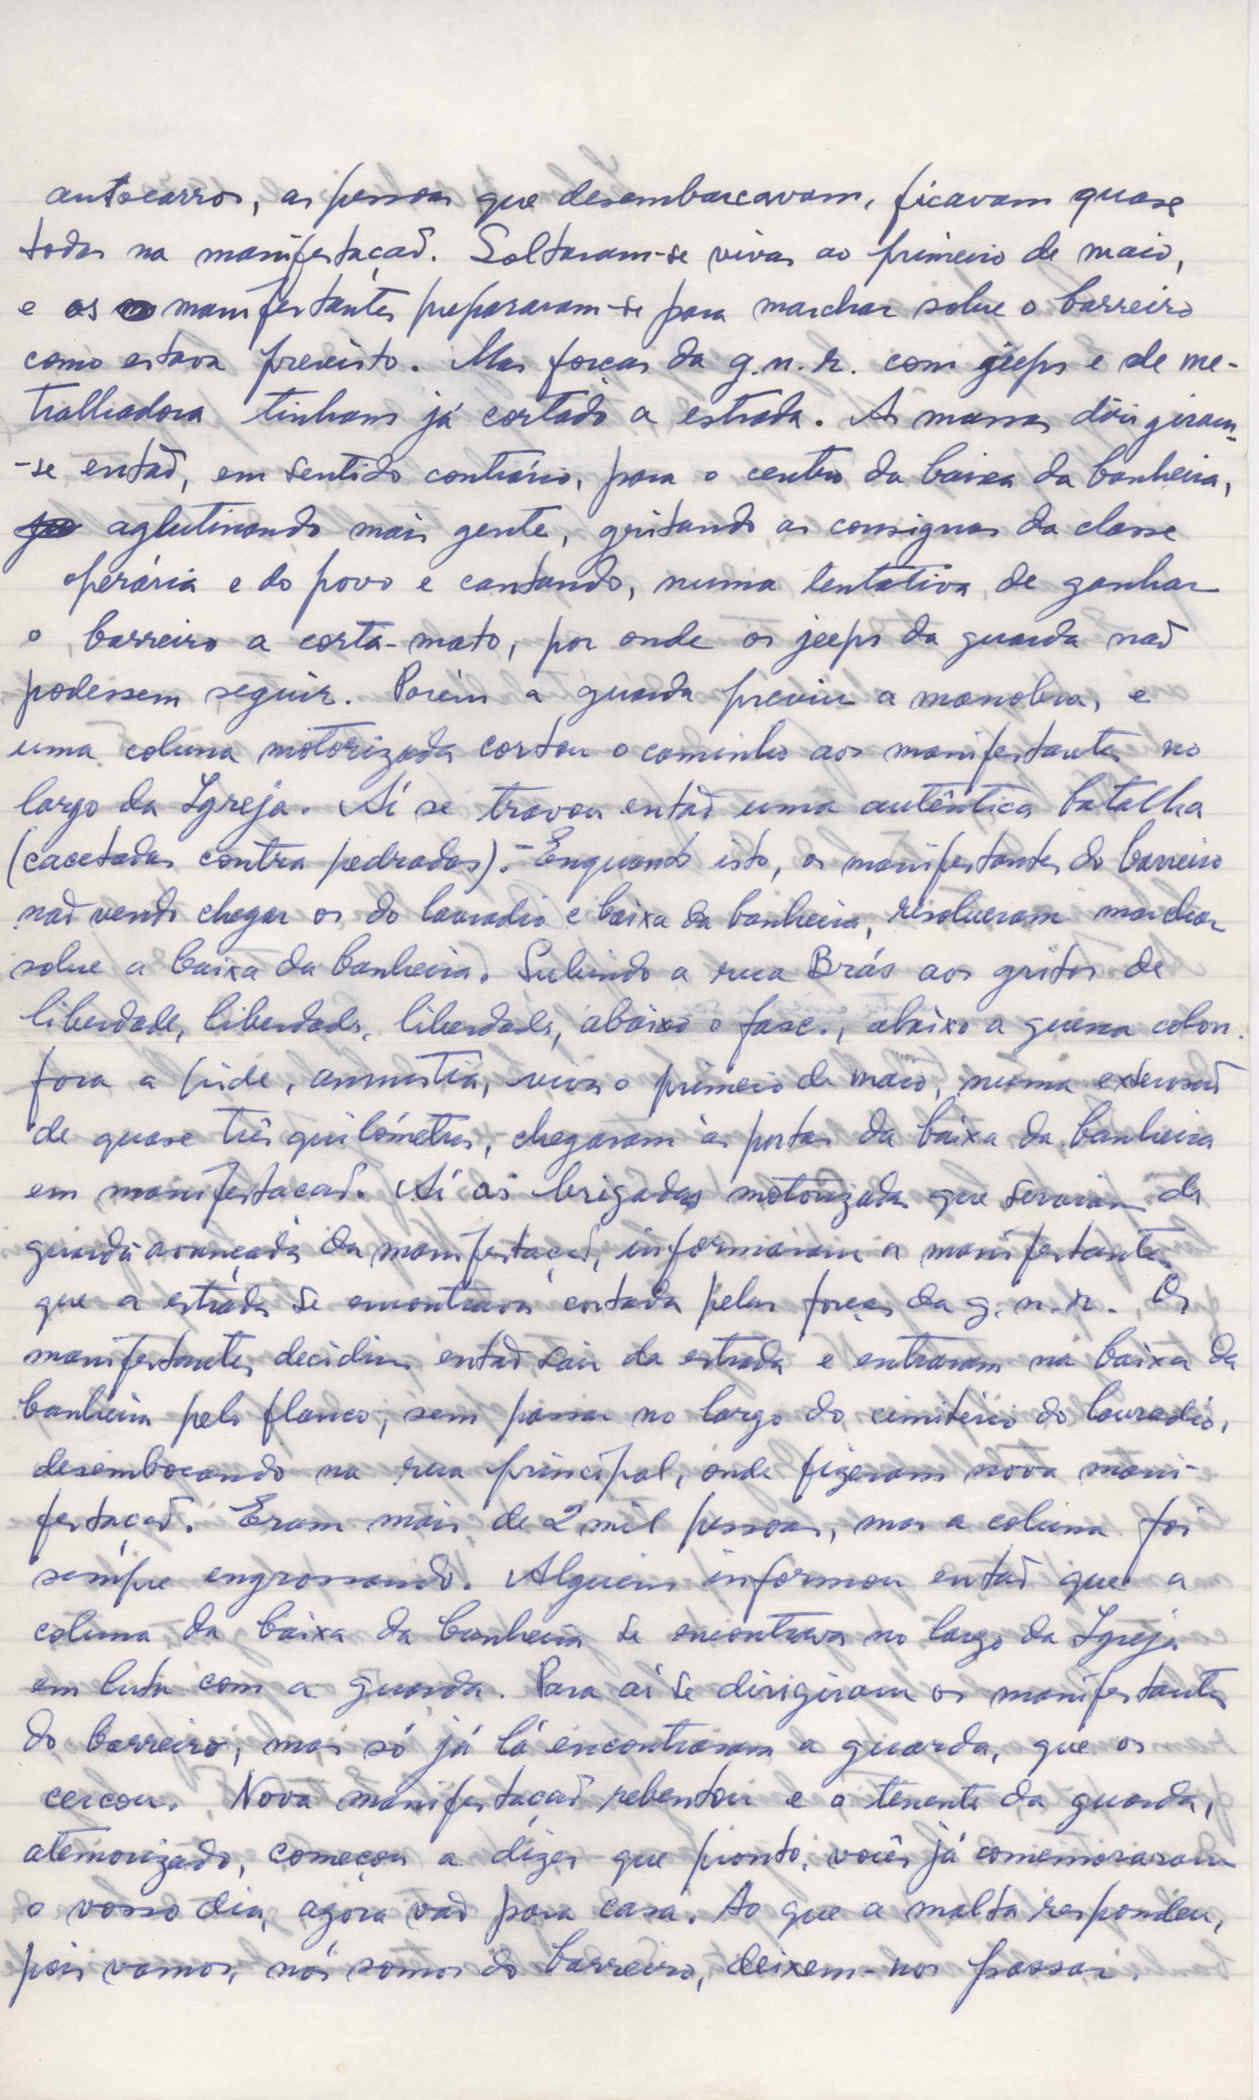 autocarros, as pessoas que desembarcavam, ficavam quase
todas na manifestação. Soltaram-se vivas ao primeiro de maio,
e os manifestantes prepararam-se para marchar sobre o barreiro
como estava previsto. Mas forças da g.n.r. com jeeps e de me-
tralhadora tinham já cortado a estrada. As massas dirigiram-
-se então, em sentido contrário, para o centro da baixa da banheira,
aglutinando mais gente, gritando as consignas da classe
operária e do povo e cantando, numa tentativa de ganhar
o barreiro a corta-mato, por onde os jeeps da guarda não
podessem seguir. Porém a guarda previu a manobra, e
uma coluna motorizada cortou o caminho aos manifestantes no
largo da Igreja. Aí se travou então uma autêntica batalha
(cacetadas contra pedradas). - Enquanto isto, os manifestantes do barreiro
não vendo chegar os do lavradio e baixa da banheira, resolveram marchar
sobre a baixa da banheira. Subindo a rua Brás aos gritos de
liberdade, liberdade, liberdade, abaixo o fasc., abaixo a guerra colon.
fora a pide, amnistia, viva o primeiro de maio, numa extensão
de quase três quilómetros, chegaram às portas da baixa da banheira
em manifestação. Aí as brigadas motorizadas que serviam de
guarda avançada da manifestação, informaram os manifestantes
que a estrada se encontrava cortada pelas forças da g.n.r. Os
manifestantes decidiram então sair da estrada e entraram na baixa da
banheira pelo flanco, sem passar no largo do cimitério do lavradio,
desembocando na rua principal, onde fizeram nova mani-
festação. Eram mais de 2 mil pessoas, mas a coluna foi
sempre engrossando. Alguém informou então que a
coluna da baixa da banheira se encontrava no largo da Igreja
em luta com a guarda. Para aí se dirigiram os manifestantes
do barreiro, mas só já lá encontraram a guarda, que os
cercou. Nova manifestação rebentou e o tenente da guarda,
atemorizado, começou a dizer que pronto, vocês já comemoraram
o vosso dia, agora vão para casa. Ao que a malta respondeu,
pois vamos, nós somos do barreiro, deixem-nos passar.